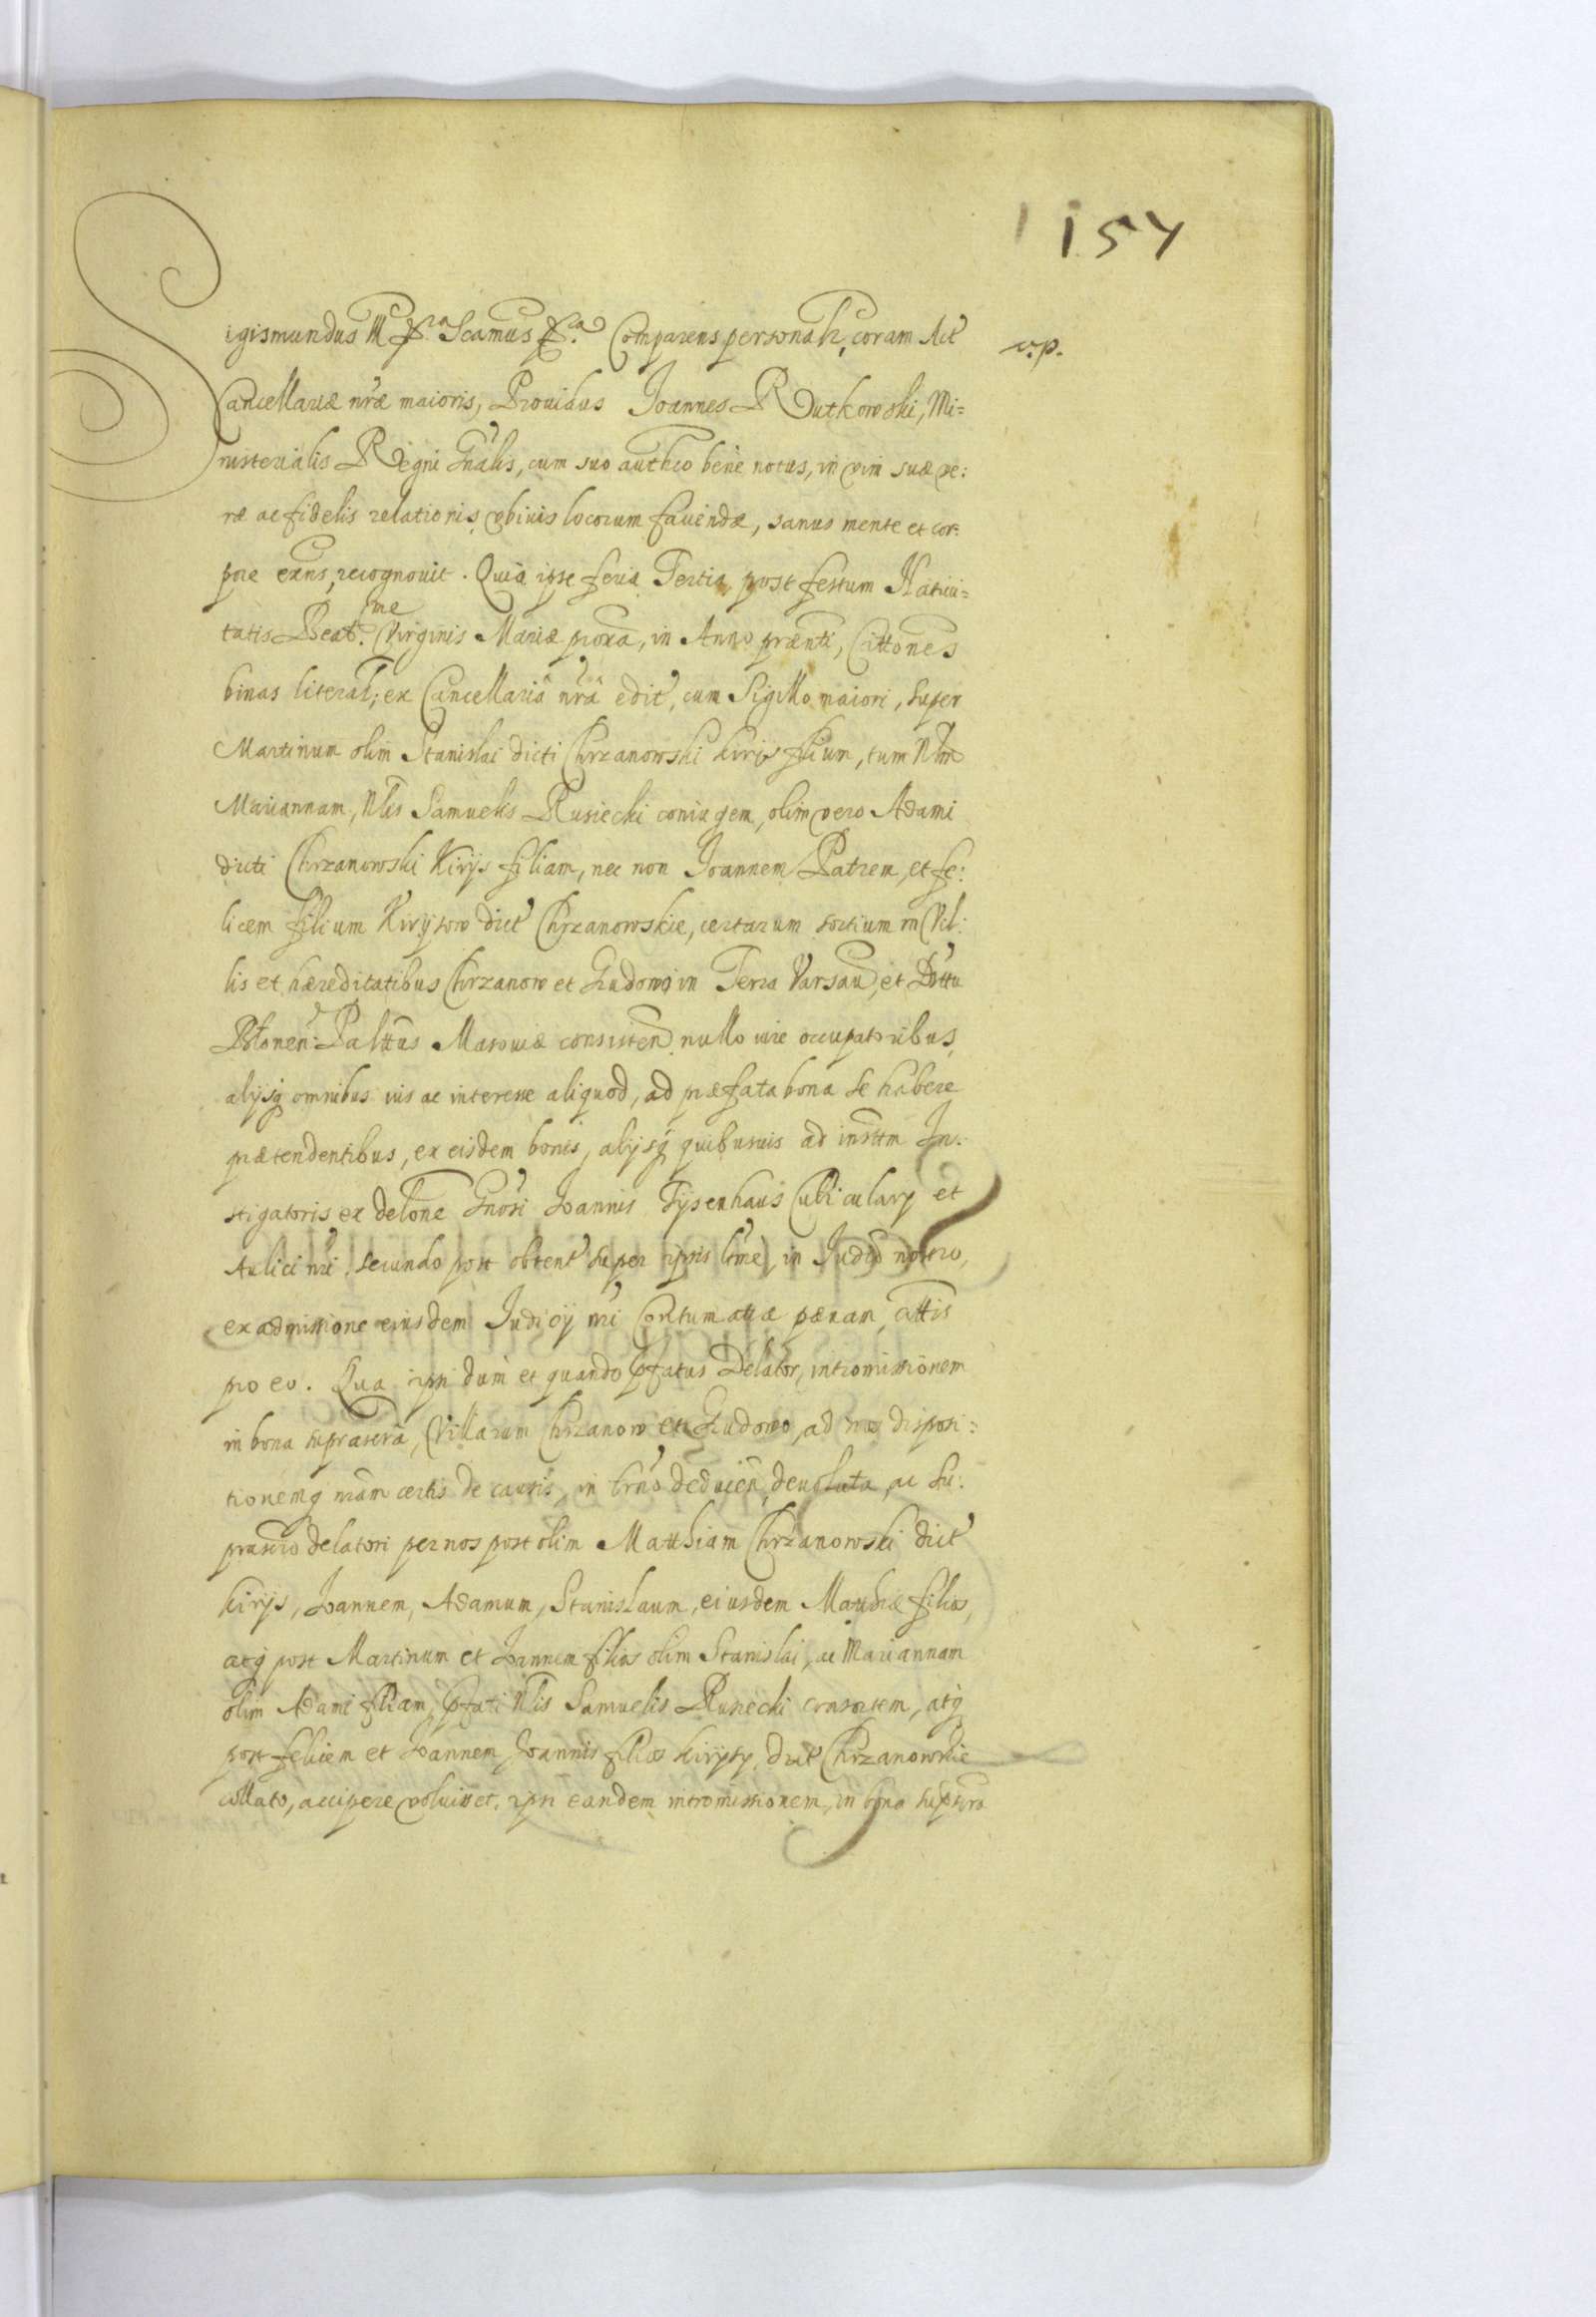 1157
Sigismundus III &ra Scamus &ra Comparens personalr, coram Act
v.p.
Cancellariæ nræ maioris, Prouidus Joannes Rutkowski, Mi=
nisterialis Regni Gnalis, cum suo authco bene notus, in vim suæ ve:
ræ ac fidelis relationis vbiuis locorum faciendæ, sanus mente et cor:
pore exns, recognouit. Quia ipse feria Tertia post festum Natiui=
tatis Beatme Virginis Mariæ proxa, in Anno prænti, Cittones
binas literal; ex Cancellariâ nrâ edit, cum Sigillo maiori, super
Martinum olim Stanislai dicti Chrzanowski kirijs filium, tum Nlm
Mariannam, Nlis Samuelis Rusiecki coniugem, olim vero Adami
dicti Chrzanowski Kirijs filiam, nec non Joannem Patrem, et fe:
licem filium Kirijsow dict Chrzanowskie, certarum sortium in Vil:
lis et hæreditatibus Chrzanow et Gudowo in Terra Varsau, et Dttu
Blonen: Palttus Masouiæ consisten nullo iure occupatoribus,
alijsq omnibus ius ac interesse aliquod, ad præfata bona se habere
prætendentibus, ex eisdem bonis, alijsq quibusuis ad insttm In:
stigatoris ex delone Gnosi Joannis Tysenhaus Cubicularij et
Aulici nri, secundo post obtent super ipsis lrme, in Judio nostro,
ex admissione eiusdem Judicij nri contumatiæ pænam, attis
pro eo. Qua ipsi dum et quando pfatus Delator, intromissionem
in bona suprascra, Villarum Chrzanow et Gudowo, ad nos disposi:
tionemq nram certis de causis, in trno deducen, deuoluta, ac su:
prascro delatori per nos post olim Matthiam Chrzanowski dict
kirijs, Joannem, Adamum, Stanislaum, eiusdem Matthiæ filios,
atq post Martinum et Joannem filios olim Stanislai, ac Mariannam
olim Adami filiam, pfati Nlis Samuelis Rusiecki consortem, atq
post felicem et Joannem Joannis filios kirijsy dict Chrzanowskie
collato, accipere voluisset. ipsi eandem intromissionem, in bona supscra